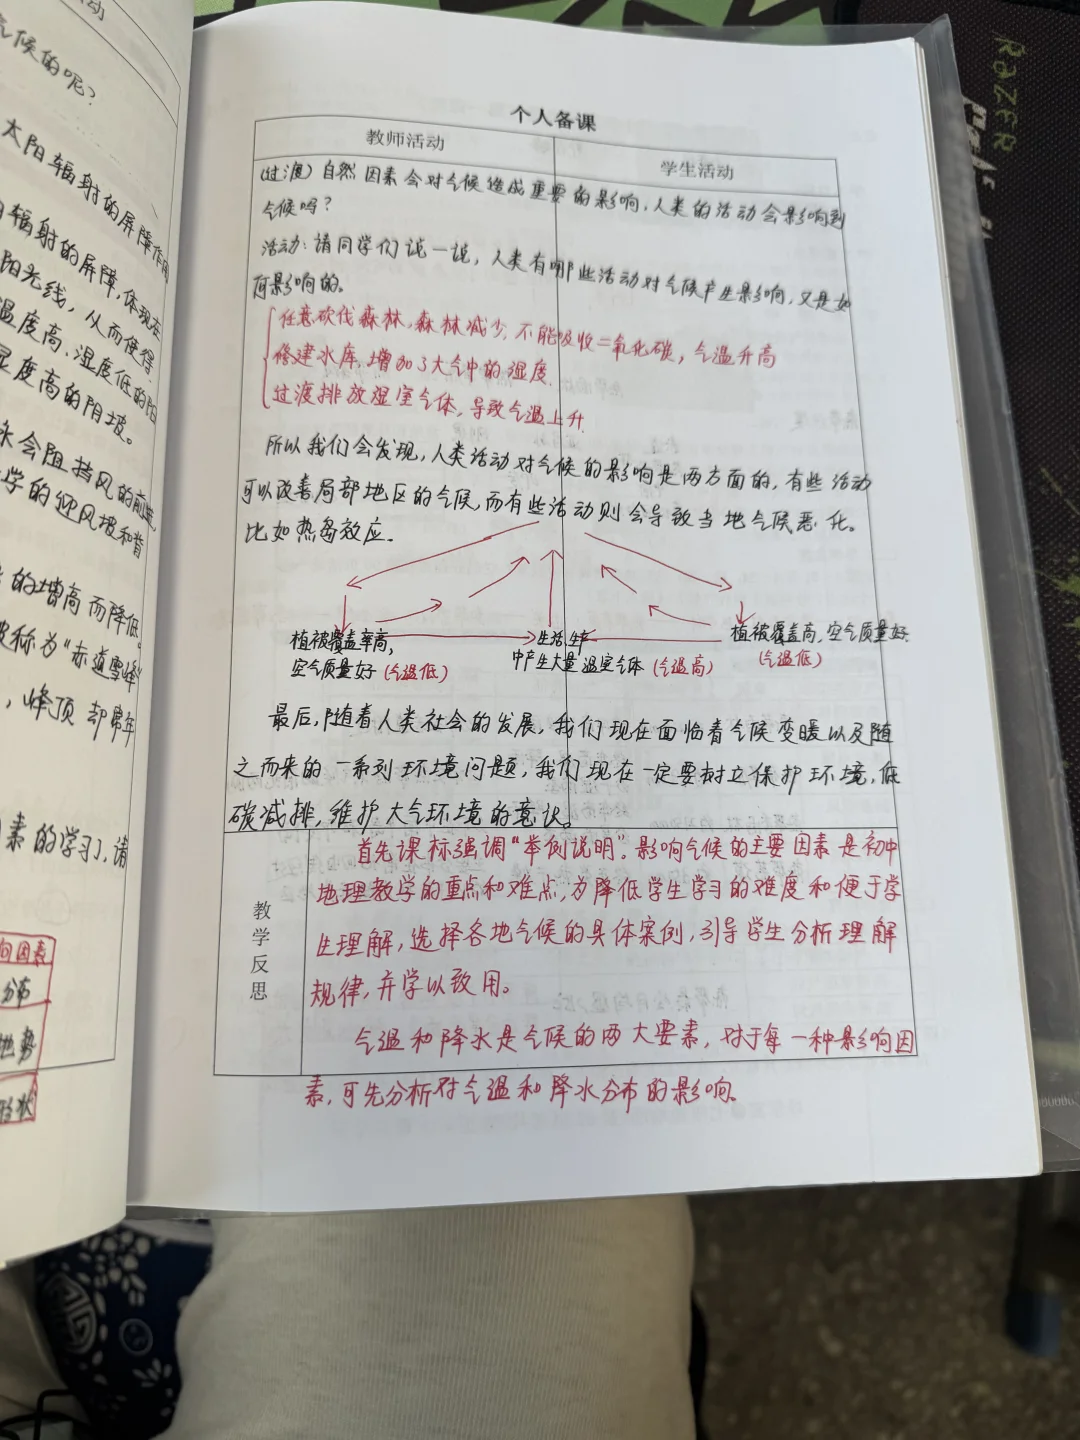 动
气候的呢？
太阳辐射的屏障作用
辐射的屏障,体现在
阳光线，从而使得
温度高、湿度低的阳
湿度高的阴坡。
会阻挡风的前进,
学的迎风坡和背
的增高而降低
被称为“赤道雪峰”
，峰顶却常年
素的学习，请
因素
分布
地势
形状
个人备课
教师活动
学生活动
(过渡）自然因素会对气候造成重要的影响，人类的活动会影响到
气候吗？
活动：请同学们说一说，人类有哪些活动对气候产生影响，又是如
何影响的。
任意砍伐森林，森林减少，不能吸收二氧化碳，气温升高
修建水库，增加了大气中的湿度.
过渡排放温室气体，导致气温上升.
所以我们会发现，人类活动对气候的影响是两方面的，有些活动
可以改善局部地区的气候,而有些活动则会导致当地气候恶化。
比如热岛效应.
植被覆盖率高，
空气质量好（气温低）
生活生产
中产生大量温室气体（气温高）
植被覆盖高，空气质量好.
（气温低）
最后，随着人类社会的发展，我们现在面临着气候变暖以及随
之而来的一系列环境问题，我们现在一定要树立保护环境，低
碳减排，维护大气环境的意识。
教学反思
首先课标强调“举例说明”.影响气候的主要因素是初中
地理教学的重点和难点，为降低学生学习的难度和便于学
生理解，选择各地气候的具体案例，引导学生分析理解
规律，并学以致用。
气温和降水是气候的两大要素，对于每一种影响因
素，可先分析对气温和降水分布的影响.
RAZER